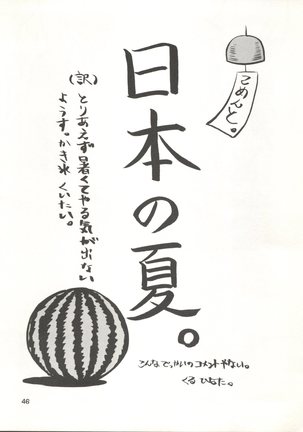 こめんと。
日本の夏。
(訳)とりあえず暑くてやる気が出ない
ようす。かき氷くいたい。
こんなでっかいのコメントやない。
46